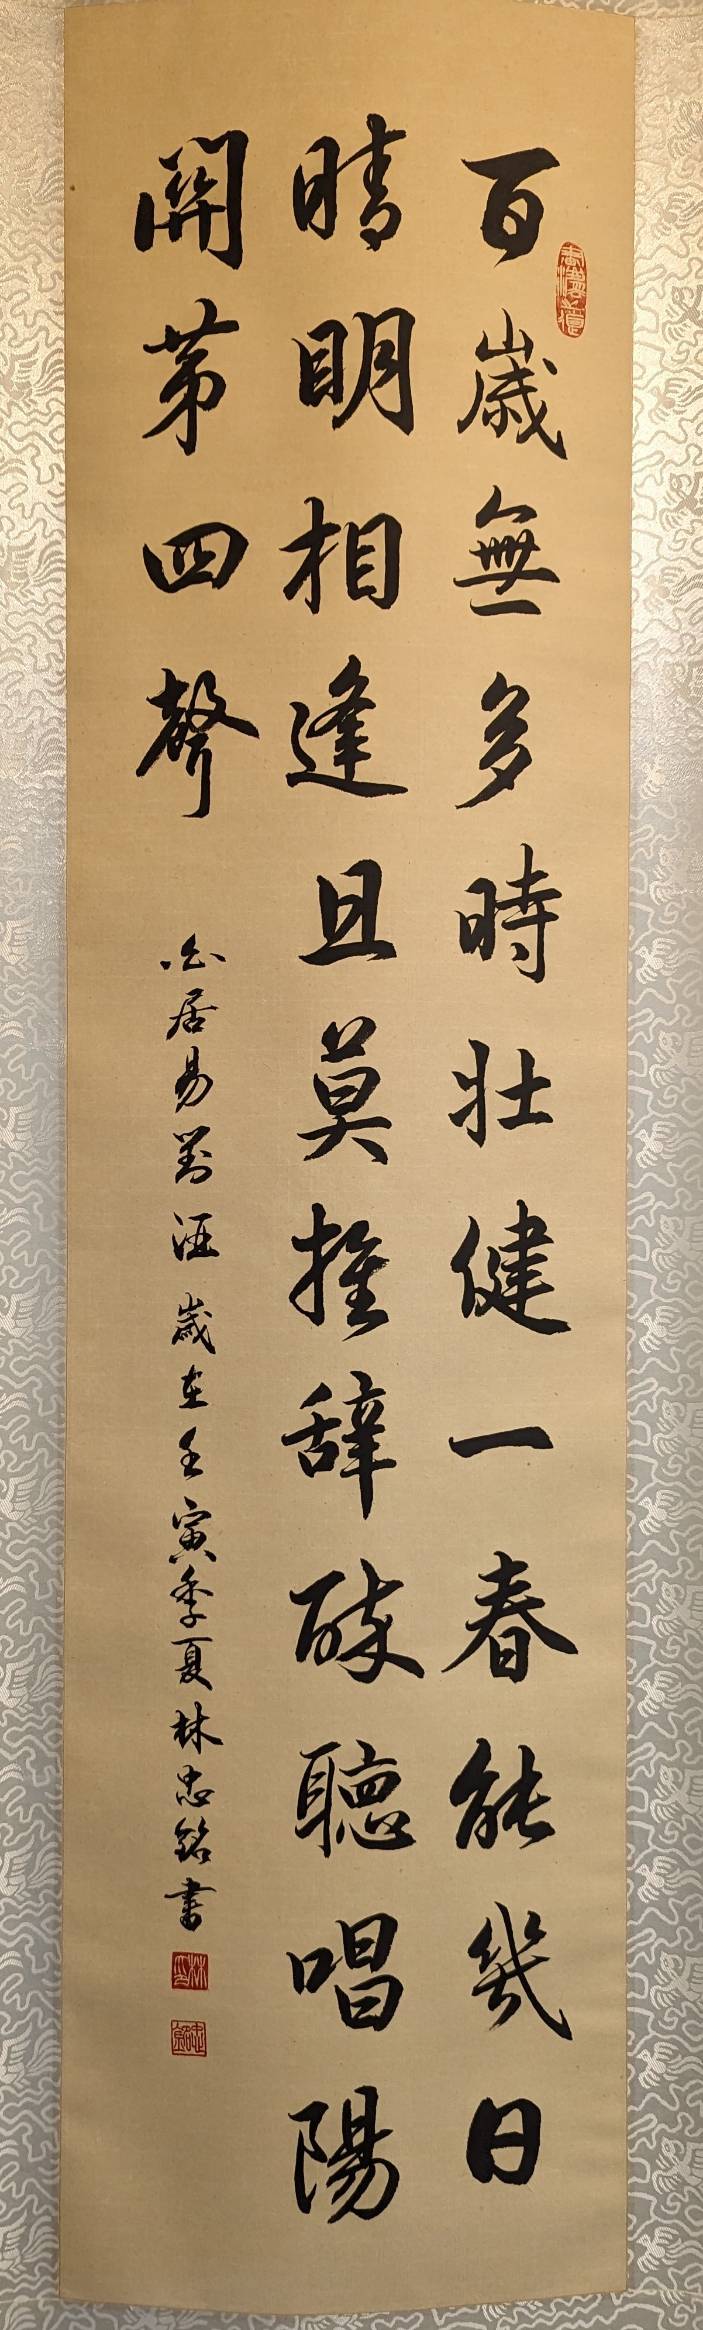 百歲無多時壯健一春能幾日
晴明相逢且莫推辭醉聽唱陽
關第四聲
白居易對酒 歲在壬寅季夏林忠銘書
林印
忠銘